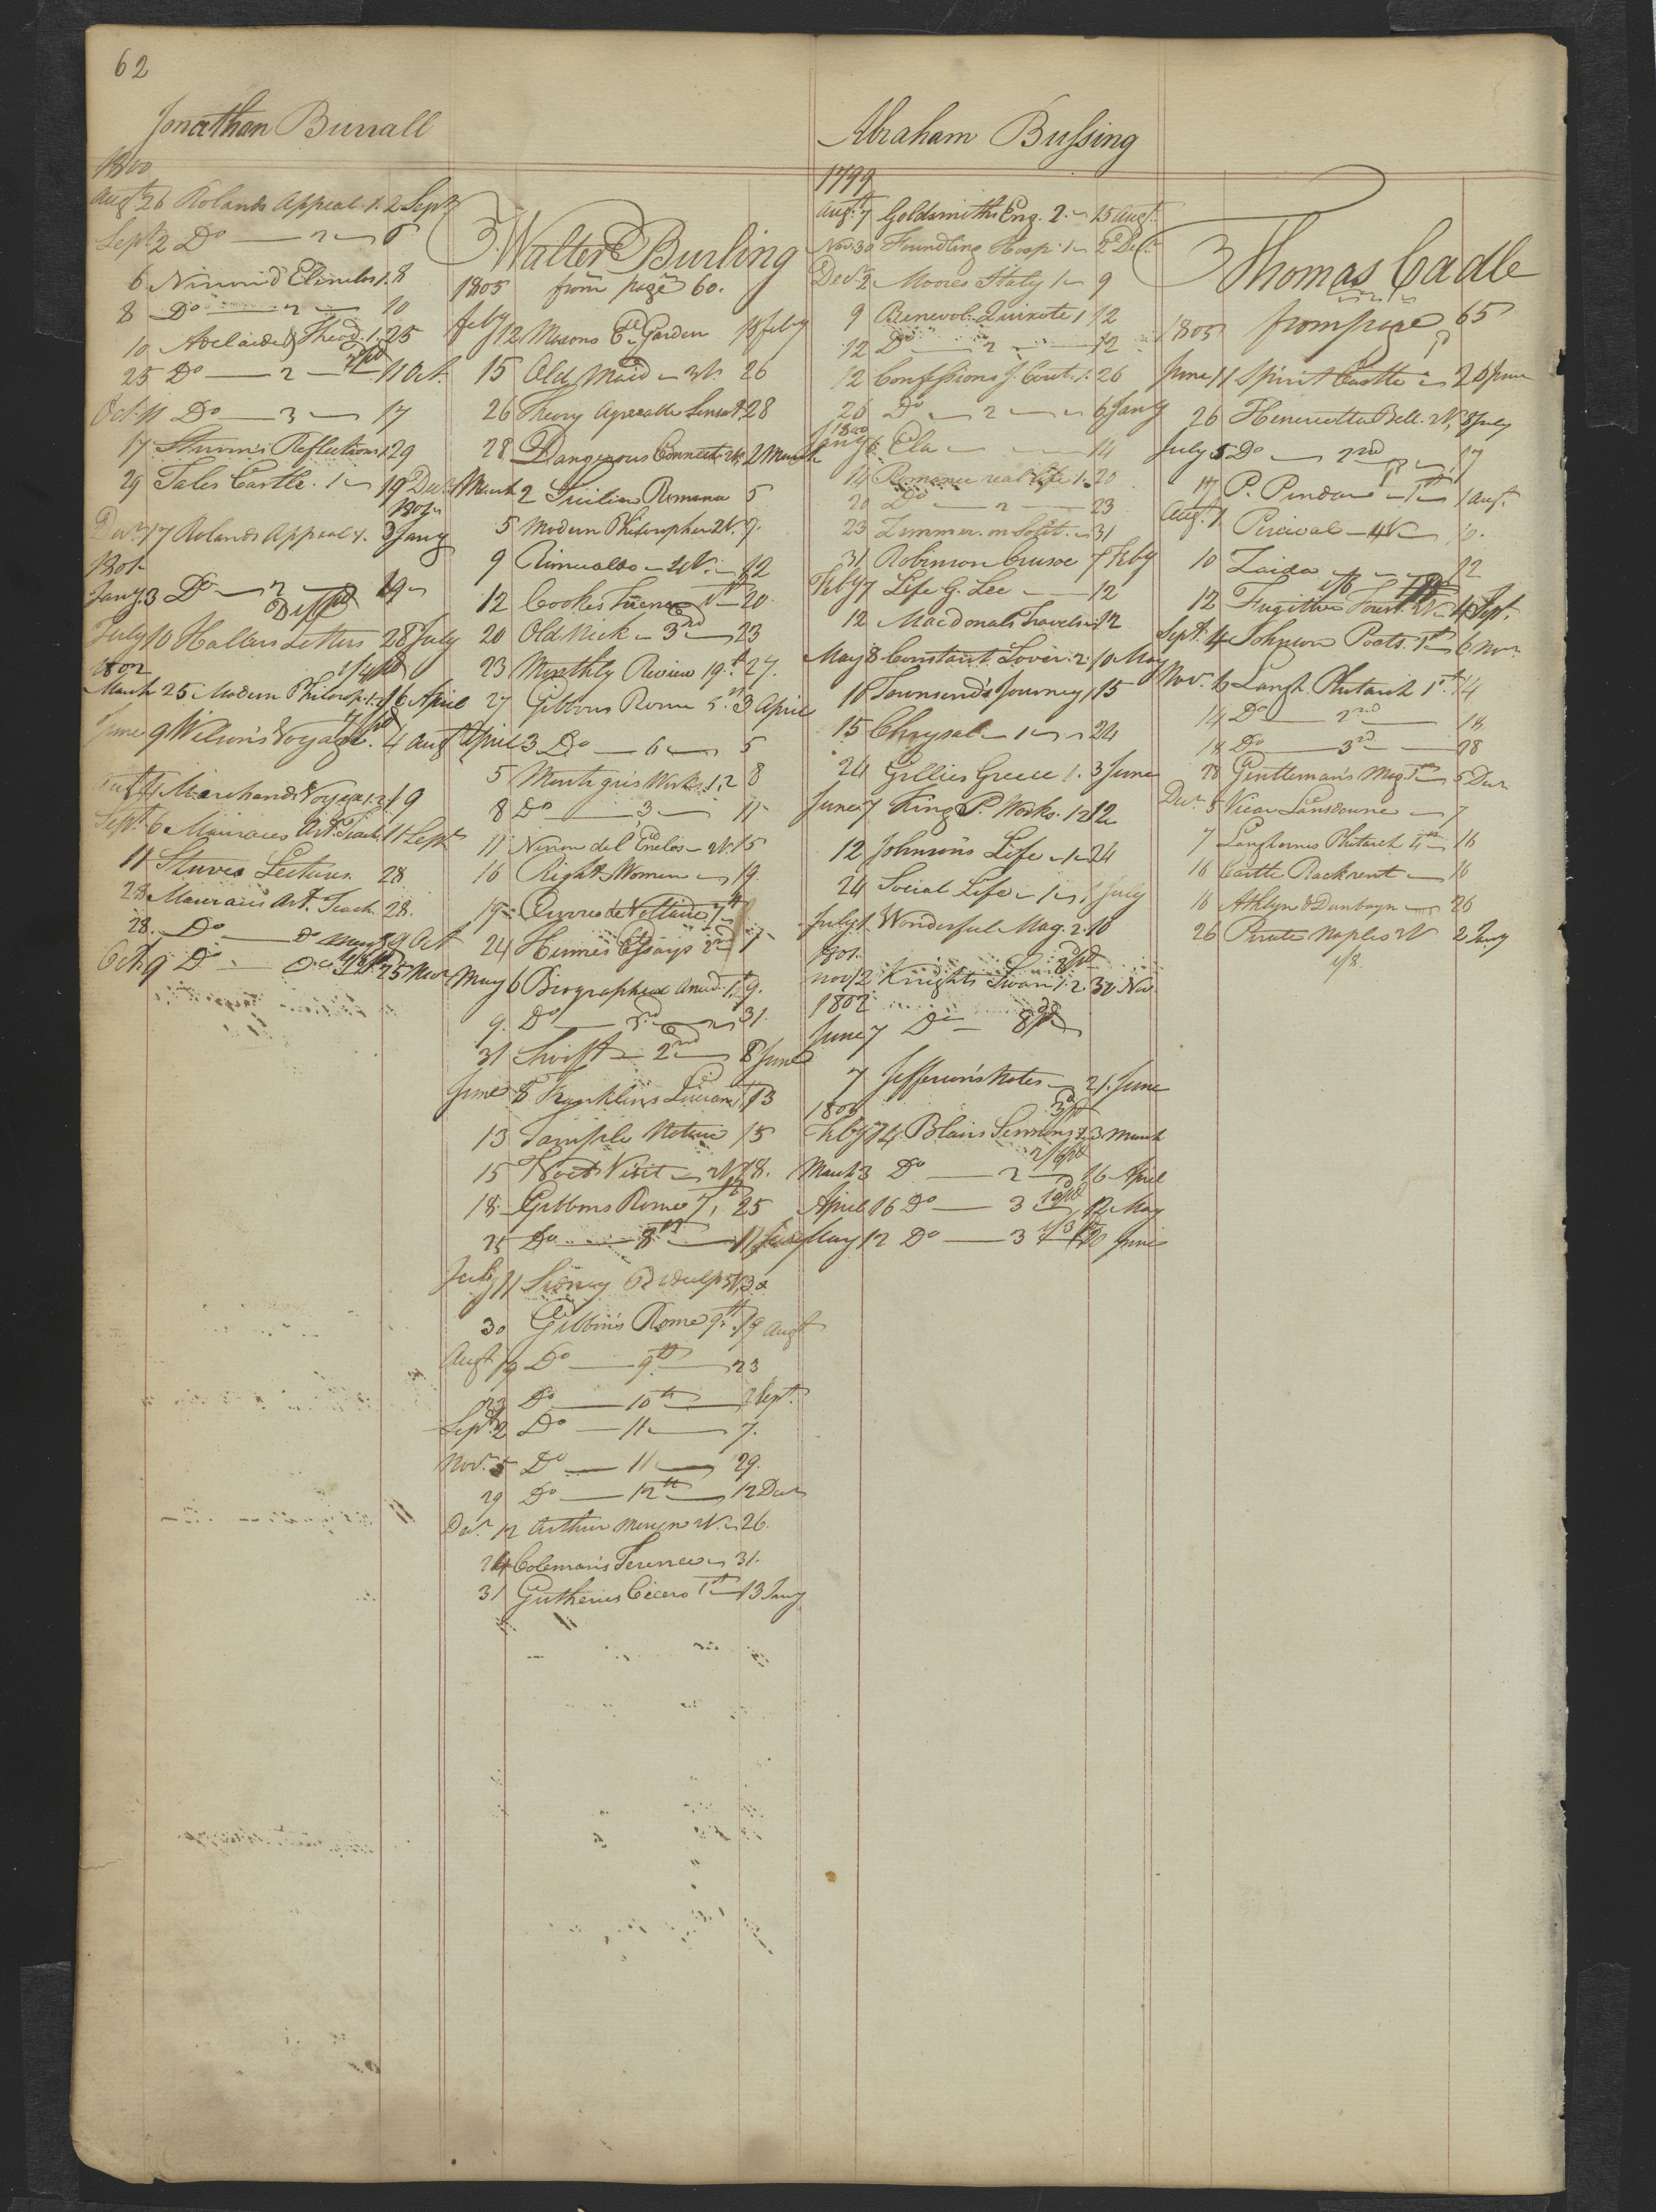 62
Jonathan Burrall
1800
Augt 26 Rolands Appeal . 1. 2 Sept
Sept 2 Do — 2 — 6
6 Ninon d Elenclos 1. 8
8 Do — 2 — 10
10 Adelaide & Theod. 1. 25
25 Do — 2 — 11 Oct.
Oct. 11 Do — 3 — 17
17 Sturm's Reflections 1 29
29 Tales Castle . 1 — 19 Decr
Decr 17 Rolands Appeal 1. 3 Jany
1801
Jany 3 Do — 2 — 19
July 10 Hallers Letters 28 July
1802
March 25 Modern Philosop. 1.2 16 April
June 9 Wilson's Voyage . 4 Augt
Augt 4 Marchands Voyage 1.2 19
Sept 6 Mauraies Art. Teach. 11 Sept
11 Stuves Lectures. 28
28 Mauraies Art. Teach. 28.
28. Do — Do 9 Oct
Oct. 9 Do — Do 25 Novr
Walter Burling
1805 from page 60.
Feby 12 Masons E. Garden 15 Feby
15 Old Maid — 3 V. 26
26 Theory Agreeable Sensat. 28
28 Dangerous Connect. 2 V. 2 March
March 2 Sicilian Romance 5
5 Modern Philosopher 2 V. 9.
9 Rinualdo — 2 V. — 12
12 Cookes Terence 1st — 20
20 Old Nick — 3rd — 23
23 Monthly Review 19.th 27.
27 Gibbons Rome 5. 3 April
April 3 Do — 6 — 5
5 Montagu's Works 1.2 8
8 Do — 3 — 11
11 Ninon del Enclos — 2 V. 15
16 Rights Women — 19
19 Ouvres de Voltaire 7th
24 Humes Essays 2nd 1
May 6 Biographical Anecd. 1. 9.
9. Do — 31.
31 Swift — 2nd — 8 June
June 8 Franklins Lucian 1 13
13 Temple Nature 15
15 Poets Visit — 2 V. 18.
18 Gibbons Rome 7, 25
25 Do — 8th — 11 July
July 11 Sidney Bidulph 5 V. 30
30 Gibbons Rome 9th 19 Augt
Augt 19 Do — 9th — 23
23 Do — 10th — 2 Sept.
Sept 2 Do — 11 — 7.
Nov. 5 Do — 11 — 29.
29 Do — 12th — 12 Decr
Decr 12 Arthur Mervyn 2 V. — 26.
24 Coleman's Terence — 31.
31 Gutheries Cicero 1st — 13 Jany
Abraham Bussing
1799
Augt 7 Goldsmiths Eng. 2. — 15 Augt
Nov. 30 Foundling Hosp. 1 — 2 Decr
Decr 2 Moores Italy 1 — 9
9 Benevol. Quixote 1 12
12 Do — 2 — 12
12 Confessions J. Cout. 1. 26
26 Do — 2 — 6 Jany
1800
Jany 6 Ela — 14
14 Romance real life 1. 20
20 Do — 2 — 23
23 Zimmer. on Solit. — 31
31 Robinson Crusoe 7 Feby
Feby 7 Life G. Lee — 12
12 Macdonals Travels 12
May 8 Constant Lover. 2. 10 May
10 Townsend's Journey 1 15
15 Chrysal — 1 — 24
24 Gillies Greece 1. 3 June
June 7 King P. Works. 1.2 12
12 Johnson's Life — 1 — 24
24 Social Life — 1 — 1 July
July 1 Wonderful Mag. 2. 10
1801.
Nov 12 Knights Swan 1. 2. 30 Nov.
1802
June 7 Do
7 Jefferson's Notes — 21. June
1803
Feby 14 Blairs Sermons 1. 3 March
March 3 Do — 2 — 16 April
April 16 Do — 3 12 May
May 12 Do — 3 June
Thomas Cadle
1805 from page 65
June 11 Spirit Castle — 26 June
26 Henrietta Bell. 2 V. 8 July
July 5 Do — 2nd — 17
17 P. Pindar — 1st — 1 Augt.
Augt. 1 Percival — 4 V — 10.
10 Zaida — 12
12 Fugitive Forest. 2 V. 4 Sept.
Sept. 4 Johnson Poets. 1st — 6 Novr
Nov. 6 Langh. Plutarch 1st 14
14 Do — 2nd — 18
18 Do — 3rd — 28
28 Gentleman's Mag. 1st — 5 Decr
Decr 5 Vicar Lansdowne — 7
7 Langhornes Plutarch 4th — 16
16 Castle Rackrent — 16
16 Athlyn & Dunbayn — 26
26 Pirate Naples 2 V 2 Jany
1/8.